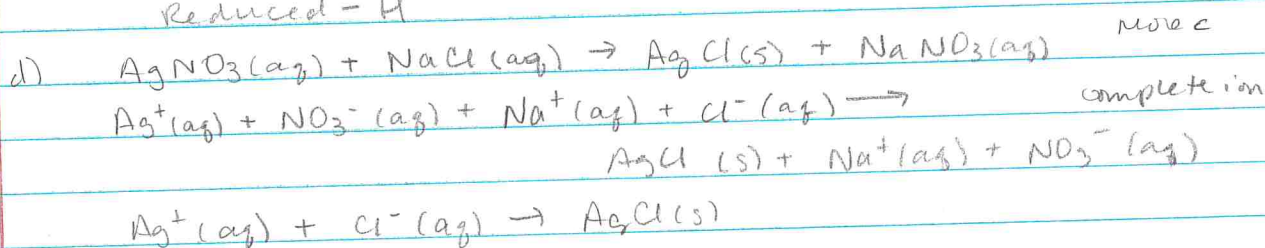 Reduced - H
d) AgNO3(aq) + NaCl(aq) → AgCl(s) + NaNO3(aq) Molec
Ag+(aq) + NO3-(aq) + Na+(aq) + Cl-(aq) → complete ion
AgCl (s) + Na+(aq) + NO3-(aq)
Ag+(aq) + Cl-(aq) → AgCl(s)